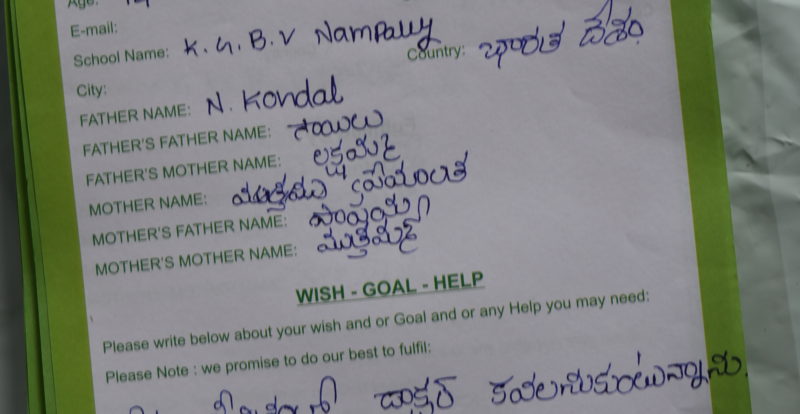 Age: 14
E-mail:
School Name: K.G.B.V Nampally
Country: భారత దేశం.
City:
FATHER NAME: N. Kondal
FATHER'S FATHER NAME: సాయిలు
FATHER'S MOTHER NAME: లక్ష్మమ్మ
MOTHER NAME:
MOTHER'S FATHER NAME:
MOTHER'S MOTHER NAME: ముత్తమ్మ
WISH - GOAL - HELP
Please write below about your wish and or Goal and or any Help you may need:
Please Note : we promise to do our best to fulfil:
డాక్టర్ కవలనుకుంటున్నాను.